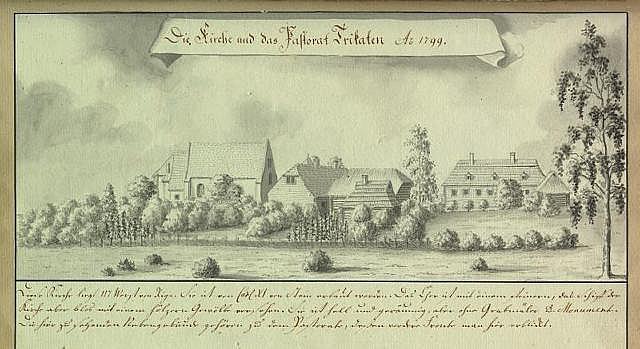 Die Kirche und das Pastorat Trikaten Ao 1799.
Diese Kirche liegt 117 Werst von Riga. Sie ist von Carl XI von Neuem erbaut worden. Das Chor ist mit einem steinern, das Schiff der
Kirche aber blos mit einem hölzern Gewölbe versehen. Sie ist hell und geräumig, aber ohne Grabmäler & Monumente.
Die hier zu sehenden Nebengebäude gehören zu dem Pastorate, dessen vordere Fronte man hier erblickt.